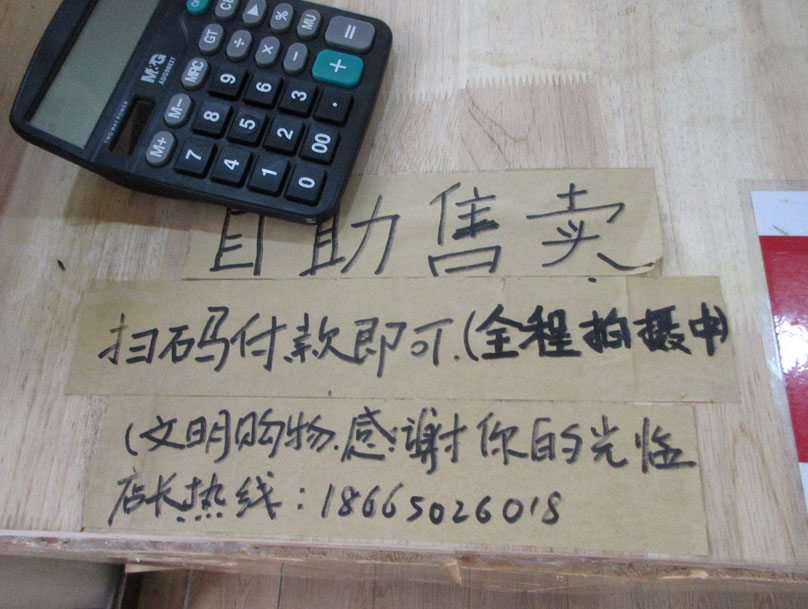 CE ▲ % MU
GT ÷ × − =
MRC 9 6 3 +
M− 8 5 2 ·
M+ 7 4 1 0 00
M&G
TWO WAY POWER
自助售卖
扫码付款即可.(全程拍摄中)
(文明购物.感谢你的光临
店长热线:18665026018